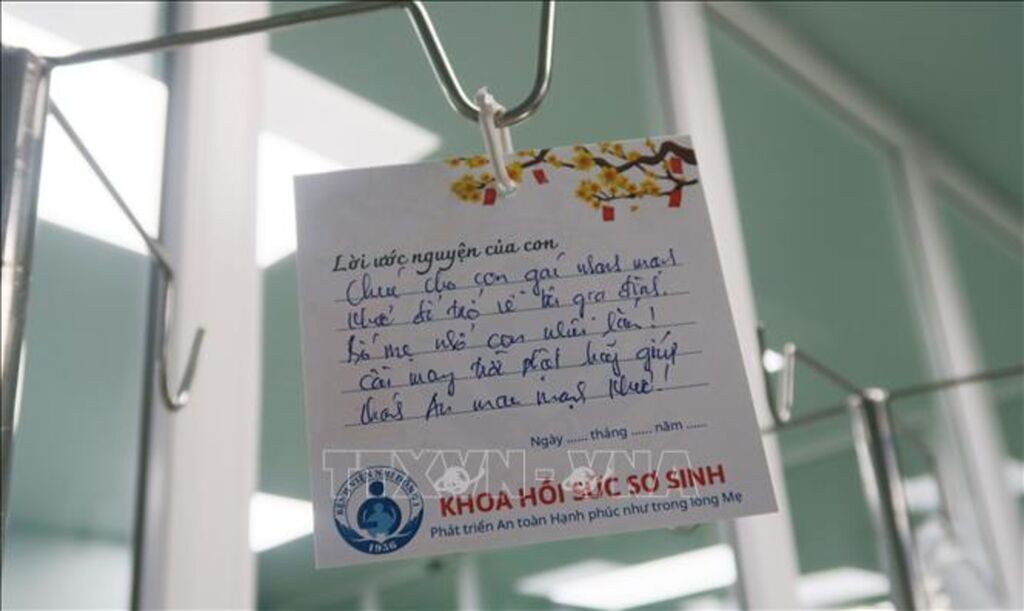 Lời ước nguyện của con
Chúc cho con gái nhanh mạnh
khoẻ để trở về với gia đình.
Bố mẹ nhớ con nhiều lắm!
Cầu mong trời phật hãy giúp
An mau mạnh khoẻ!
Ngày ...... tháng ...... năm ......
TTXVN-VNA
KHOA HỒI SỨC SƠ SINH
Phát triển An toàn Hạnh phúc như trong lòng Mẹ
BỆNH VIỆN NHI ĐỒNG 1
1956